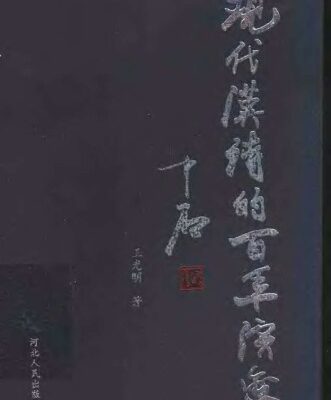 现代漢诗的百年演变
王光明 著
河北人民出版